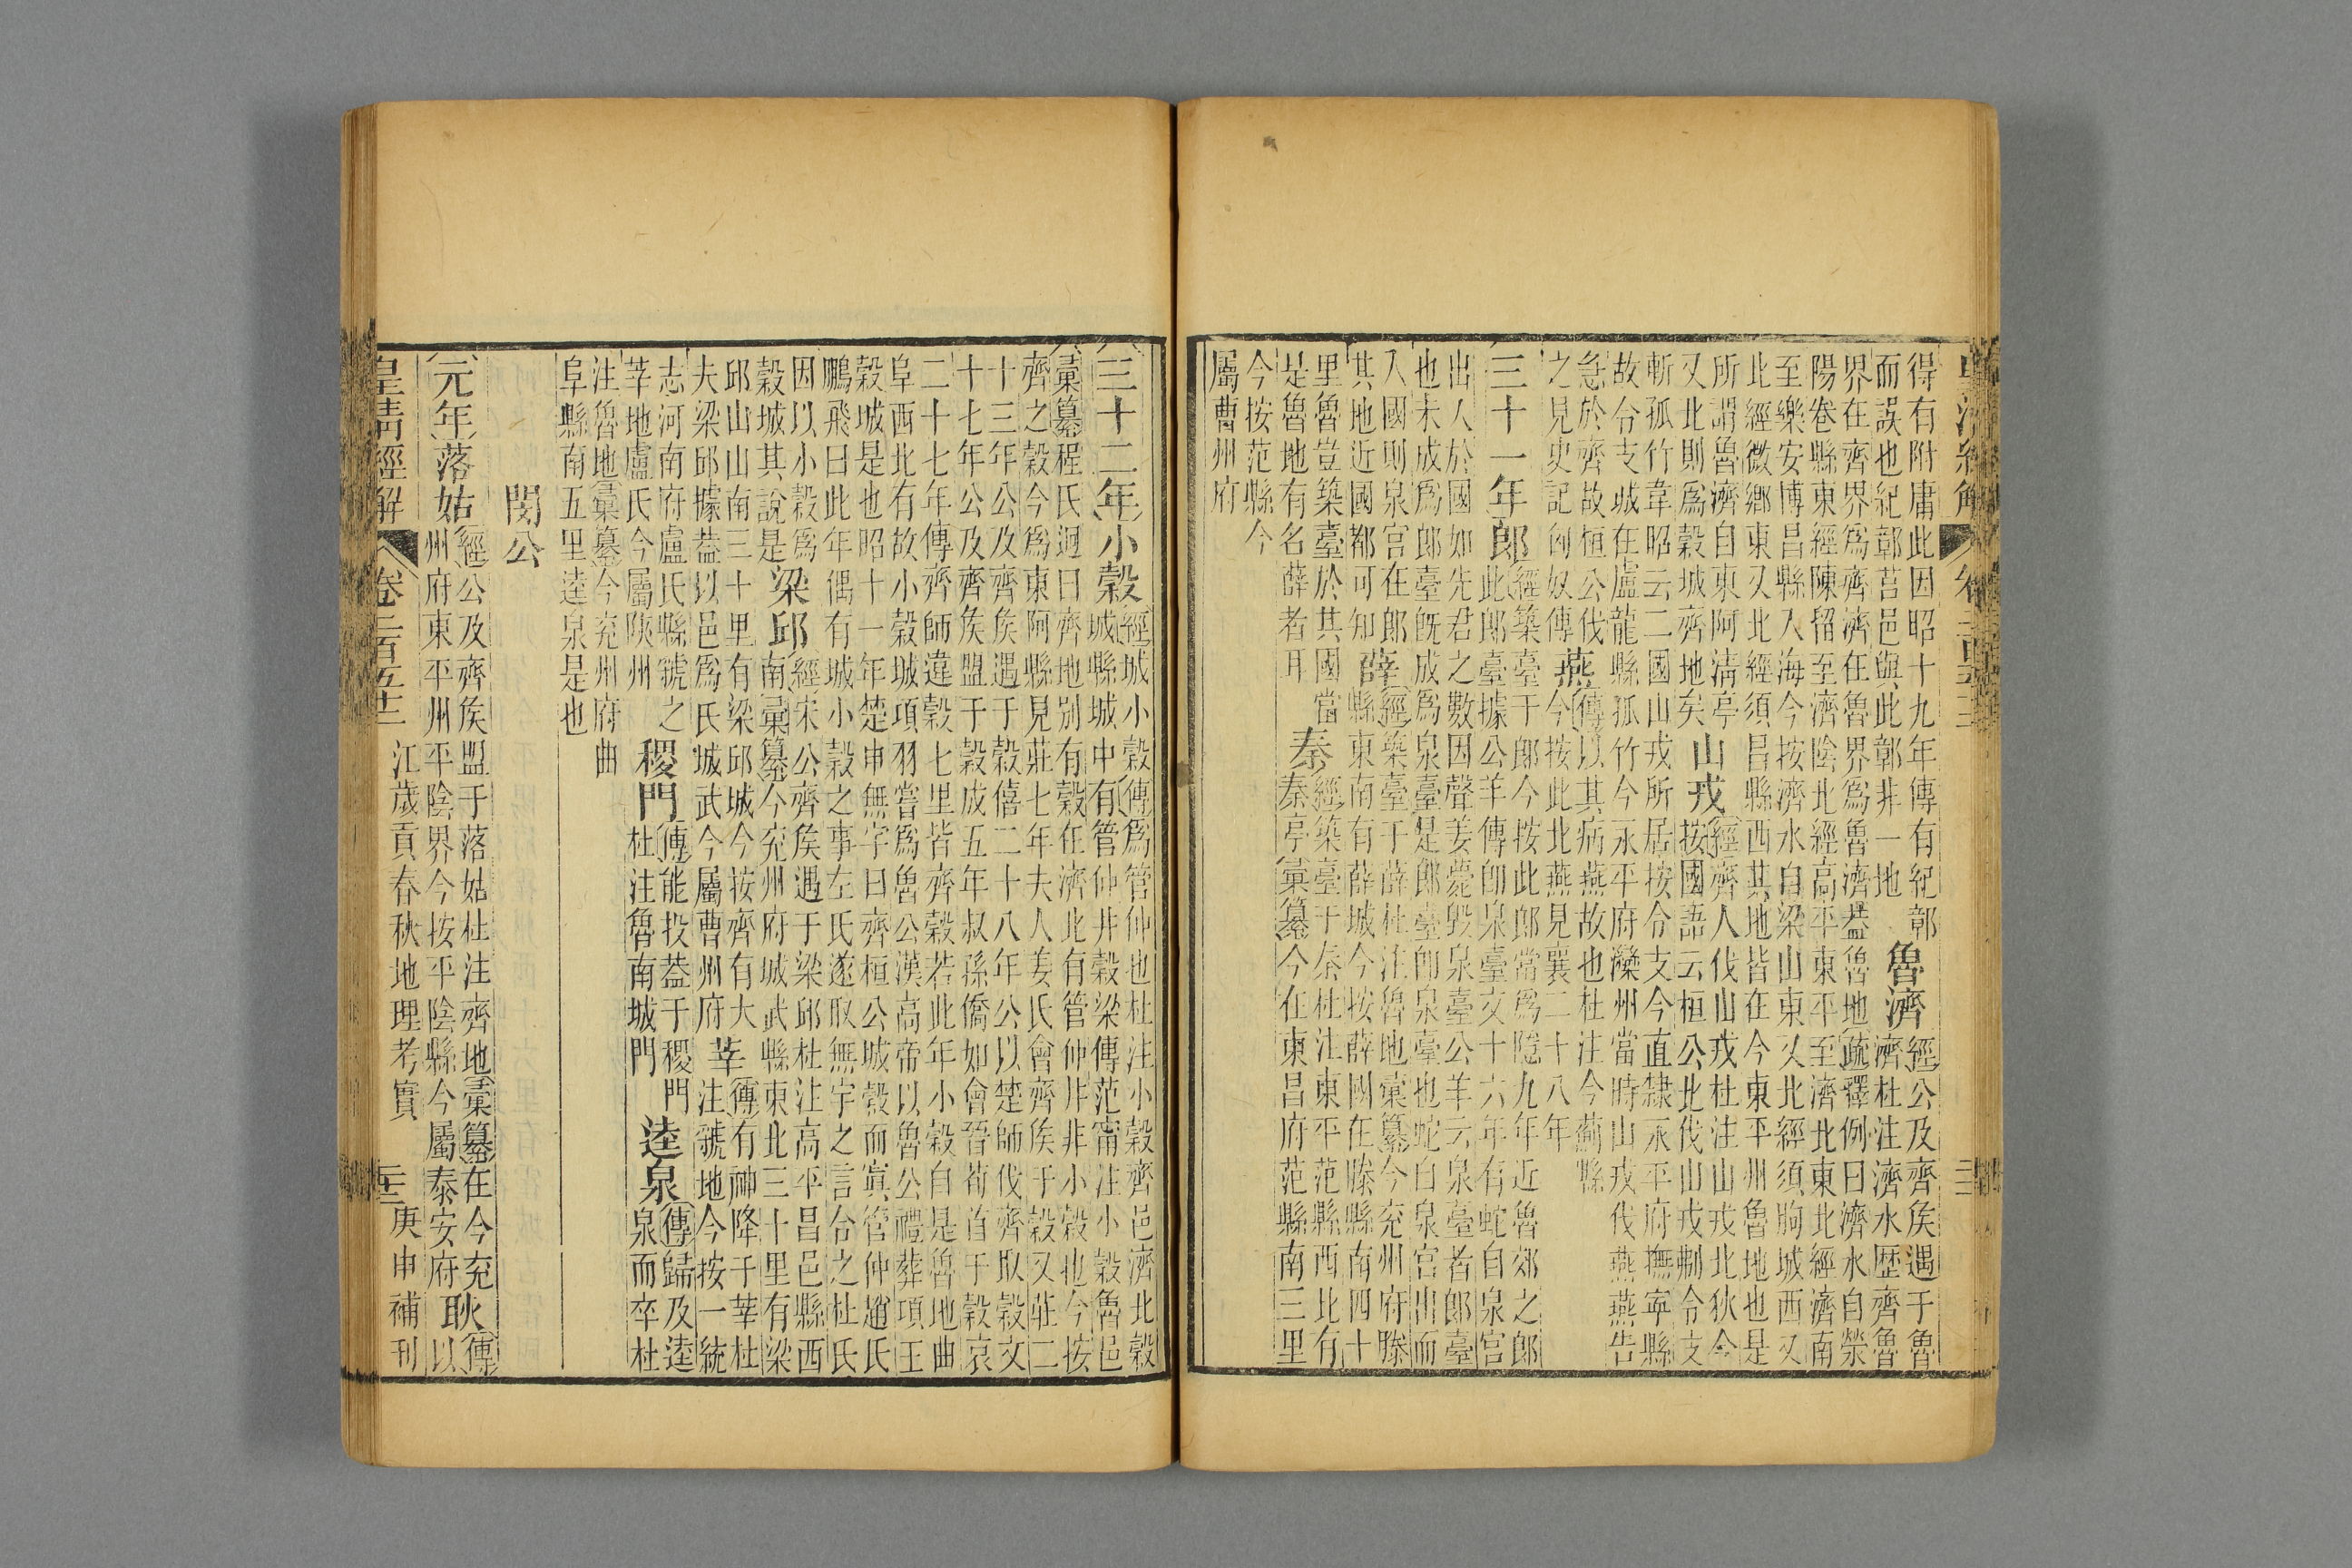 皇清經解
得有附庸此因昭十九年傳有紀鄣
而誤也紀鄣莒邑與此鄣非一地
魯濟
經公及齊侯遇于魯
濟杜注濟水歷齊魯
界在齊界爲齊濟在魯界爲魯濟蓋魯地疏釋例曰濟水自滎
陽卷縣東經陳留至濟陰北經高平東平至濟北東北經濟南
至樂安博昌縣入海今按濟水自梁山東又北經須朐城西又
北經微鄉東又北經須昌縣西其地皆在今東平州魯地也是
所謂魯濟自東阿清亭
又北則爲穀城齊地矣
山戎
經齊人伐山戎杜注山戎北狄今
按國語云桓公北伐山戎刜令支
斬孤竹韋昭云二國山戎所居按令支今直隸永平府撫寧縣
故令支城在盧龍縣孤竹今永平府灤州當時山戎伐燕燕告
急於齊故桓公伐
之見史記匈奴傳
燕
傳以其病燕故也杜注今薊縣
今按此北燕見襄二十八年
三十一年郎
經築臺于郎今按此郎當爲隱九年近魯郊之郎
此郎臺據公羊傳卽泉臺文十六年有蛇自泉宮
出入於國如先君之數因聲姜薨毀泉臺公羊云泉臺者郎臺
也未成爲郎臺旣成爲泉臺是郎臺卽泉臺也蛇自泉宮出而
入國則泉宮在郎
其地近國都可知
薛
經築臺于薛杜注魯地彙纂今兖州府滕
縣東南有薛城今按薛國在滕縣南四十
里魯豈築臺於其國當
是魯地有名薛者耳
秦
經築臺于秦杜注東平范縣西北有
秦亭彙纂今在東昌府范縣南三里
今按范縣今
屬曹州府
三十二年小穀
經城小穀傳爲管仲也杜注小穀齊邑濟北穀
城縣城中有管仲井穀梁傳范甯注小穀魯邑
彙纂程氏迥曰齊地別有穀在濟北有管仲井非小穀也今按
齊之穀今爲東阿縣見莊七年夫人姜氏會齊侯于穀又莊二
十三年公及齊侯遇于穀僖二十八年公以楚師伐齊取穀文
十七年公及齊侯盟于穀成五年叔孫僑如會晉荀首于穀哀
二十七年傳齊師違穀七里皆齊穀若此年小穀自是魯地曲
阜西北有故小穀城項羽嘗爲魯公漢高帝以魯公禮葬項王
穀城是也昭十一年楚申無宇曰齊桓公城穀而寘管仲趙氏
鵬飛曰此年偶有城小穀之事左氏遂取無宇之言合之杜氏
因以小穀爲
穀城其說是
梁邱
經宋公齊侯遇于梁邱杜注高平昌邑縣西
南彙纂今兖州府城武縣東北三十里有梁
邱山山南三十里有梁邱城今按齊有大
夫梁邱據蓋以邑爲氏城武今屬曹州府
莘
傳有神降于莘杜
注虢地今按一統
志河南府盧氏縣虢之
莘地盧氏今屬陝州
稷門
傳能投蓋于稷門
杜注魯南城門
逵泉
傳歸及逵
泉而卒杜
注魯地彙纂今兖州府曲
阜縣南五里逵泉是也
閔公
元年落姑
經公及齊侯盟于落姑杜注齊地彙纂在今兖
州府東平州平陰界今按平陰縣今屬泰安府
耿
傳
以
皇清經解 卷二百五十二 江歲貢春秋地理考實 三十二 庚申補刊